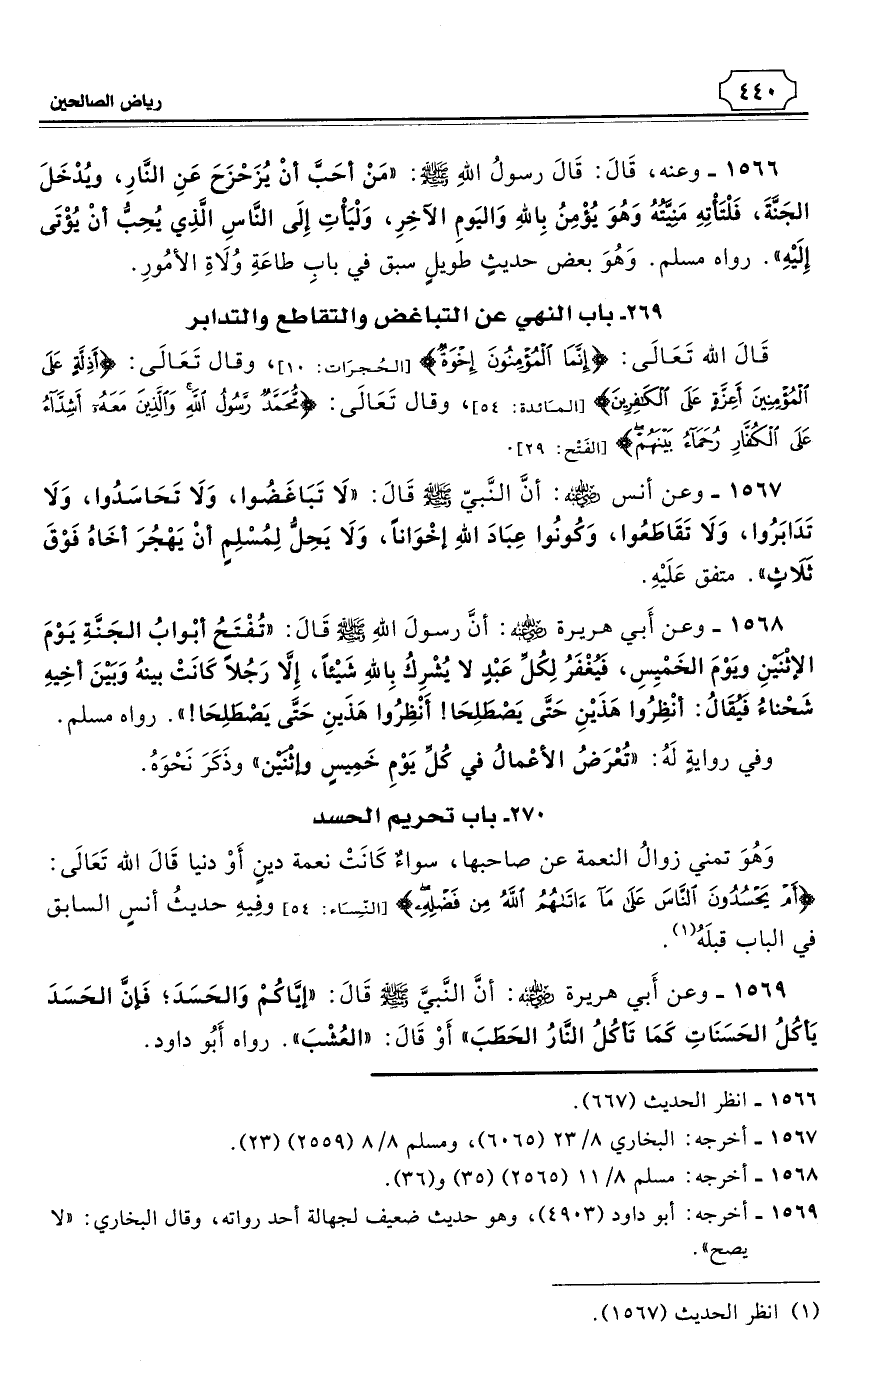 ٤٤٠
رياض الصالحين
١٥٦٦ ـ وعنه، قَالَ: قَالَ رسولُ اللهِ ﷺ: «مَنْ أحَبَّ أنْ يُزَحْزَحَ عَنِ النَّارِ، ويُدْخَلَ
الجَنَّةَ، فَلْتَأتِهِ مَنِيَّتُهُ وَهُوَ يُؤْمِنُ بِاللهِ وَاليَومِ الآخِرِ، وَلْيَأْتِ إِلَى النَّاسِ الَّذِي يُحِبُّ أنْ يُؤْتَى
إِلَيْهِ». رواه مسلم. وَهُوَ بعض حديثٍ طويلٍ سبق في بابِ طاعَةِ وُلَاةِ الأمُورِ.
٢٦٩ـ باب النهي عن التباغض والتقاطع والتدابر
قَالَ الله تَعَالَى: ﴿إِنَّمَا ٱلْمُؤْمِنُونَ إِخْوَةٌ﴾ [الحُجرَات: ١٠]، وقال تَعَالَى: ﴿أَذِلَّةٍ عَلَى
ٱلْمُؤْمِنِينَ أَعِزَّةٍ عَلَى ٱلْكَٰفِرِينَ﴾ [المائدة: ٥٤]، وقال تَعَالَى: ﴿مُّحَمَّدٌ رَّسُولُ ٱللَّهِۚ وَٱلَّذِينَ مَعَهُۥٓ أَشِدَّآءُ
عَلَى ٱلْكُفَّارِ رُحَمَآءُ بَيْنَهُمْۖ﴾ [الفَتْح: ٢٩].
١٥٦٧ ـ وعن أنس رضي الله عنه: أنَّ النَّبيّ ﷺ قَالَ: «لَا تَبَاغَضُوا، وَلَا تَحَاسَدُوا، وَلَا
تَدَابَرُوا، وَلَا تَقَاطَعُوا، وَكُونُوا عِبَادَ اللهِ إخْوَاناً، وَلَا يَحِلُّ لِمُسْلِمٍ أنْ يَهْجُرَ أخَاهُ فَوْقَ
ثَلَاثٍ». متفق عَلَيْهِ.
١٥٦٨ ـ وعن أَبي هريرة رضي الله عنه: أنَّ رسولَ اللهِ ﷺ قَالَ: «تُفْتَحُ أبْوابُ الجَنَّةِ يَوْمَ
الإثْنَيْنِ ويَوْمَ الخَمْيِسِ، فَيُغْفَرُ لِكُلِّ عَبْدٍ لا يُشْرِكُ بِاللهِ شَيْئاً، إِلَّا رَجُلاً كَانَتْ بينهُ وَبَيْنَ أخِيهِ
شَحْنَاءُ فَيُقَالُ: أنْظِرُوا هَذَيْنِ حَتَّى يَصْطَلِحَا! أنْظِرُوا هَذَينِ حَتَّى يَصْطَلِحَا!». رواه مسلم.
وفي روايةٍ لَهُ: «تُعْرَضُ الأعْمالُ في كُلِّ يَوْمِ خَمِيسٍ وإثْنَيْن» وذَكَرَ نَحْوَهُ.
٢٧٠ـ باب تحريم الحسد
وَهُوَ تمني زوالُ النعمة عن صاحبها، سواءٌ كَانَتْ نعمة دينٍ أَوْ دنيا قَالَ الله تَعَالَى:
﴿أَمْ يَحْسُدُونَ ٱلنَّاسَ عَلَىٰ مَآ ءَاتَىٰهُمُ ٱللَّهُ مِن فَضْلِهِۦۖ﴾ [النِّسَاء: ٥٤] وفِيهِ حديثُ أنسٍ السابق
في الباب قبلَهُ(١).
١٥٦٩ ـ وعن أَبي هريرة رضي الله عنه: أنَّ النَّبيَّ ﷺ قَالَ: «إيَّاكُمْ وَالحَسَدَ؛ فَإنَّ الحَسَدَ
يَأكُلُ الحَسَنَاتِ كَمَا تَأكُلُ النَّارُ الحَطَبَ» أَوْ قَالَ: «العُشْبَ». رواه أَبُو داود.
١٥٦٦ ـ انظر الحديث (٦٦٧).
١٥٦٧ ـ أخرجه: البخاري ٨/ ٢٣ (٦٠٦٥)، ومسلم ٨/ ٨ (٢٥٥٩) (٢٣).
١٥٦٨ ـ أخرجه: مسلم ٨/ ١١ (٢٥٦٥) (٣٥) و(٣٦).
١٥٦٩ ـ أخرجه: أبو داود (٤٩٠٣)، وهو حديث ضعيف لجهالة أحد رواته، وقال البخاري: «لا
يصح».
(١) انظر الحديث (١٥٦٧).